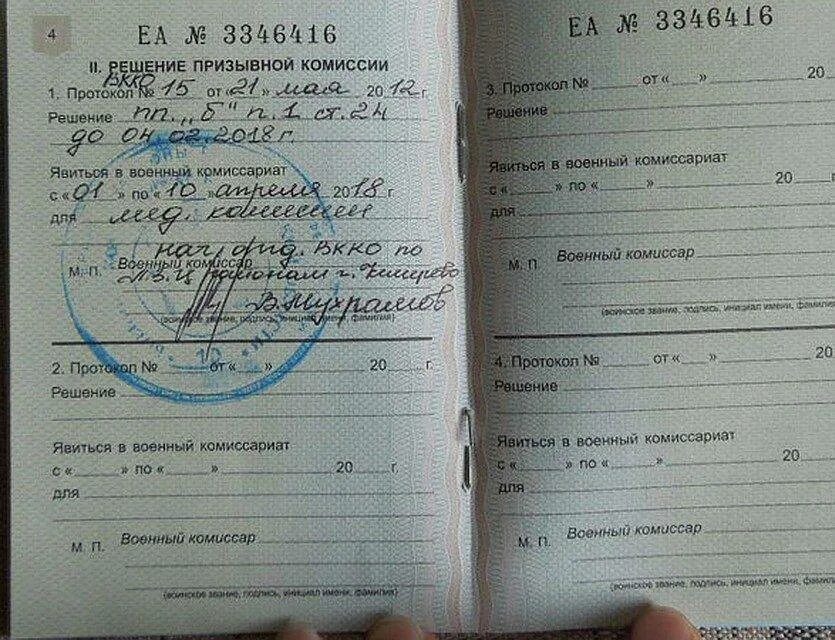 4
ЕА № 3346416
II. РЕШЕНИЕ ПРИЗЫВНОЙ КОМИССИИ
ВККО
1. Протокол № 15 от «21» мая 2012 г.
Решение пп. „б" п.1 ст.24
до 04.02.2018 г.
Явиться в военный комиссариат
с «01» по «10» апреля 2018 г.
для мед. комиссии
нач. отд. ВККО по
М. П. Военный комиссар
районам г. Кемерово
(воинское звание, подпись, инициал имени, фамилия)
2. Протокол № от « » 20 г.
Решение
Явиться в военный комиссариат
с « » по « » 20 г.
для
М. П. Военный комиссар
(воинское звание, подпись, инициал имени, фамилия)
ЕА № 3346416
3. Протокол № от « » 20
Решение
Явиться в военный комиссариат
с « » по « » 20
для
М. П. Военный комиссар
(воинское звание, подпись, инициал имени, фамилия
4. Протокол № от « » 20
Решение
Явиться в военный комиссариат
с « » по « » 20
для
М. П. Военный комиссар
(воинское звание, подпись, инициал имени, фамилия